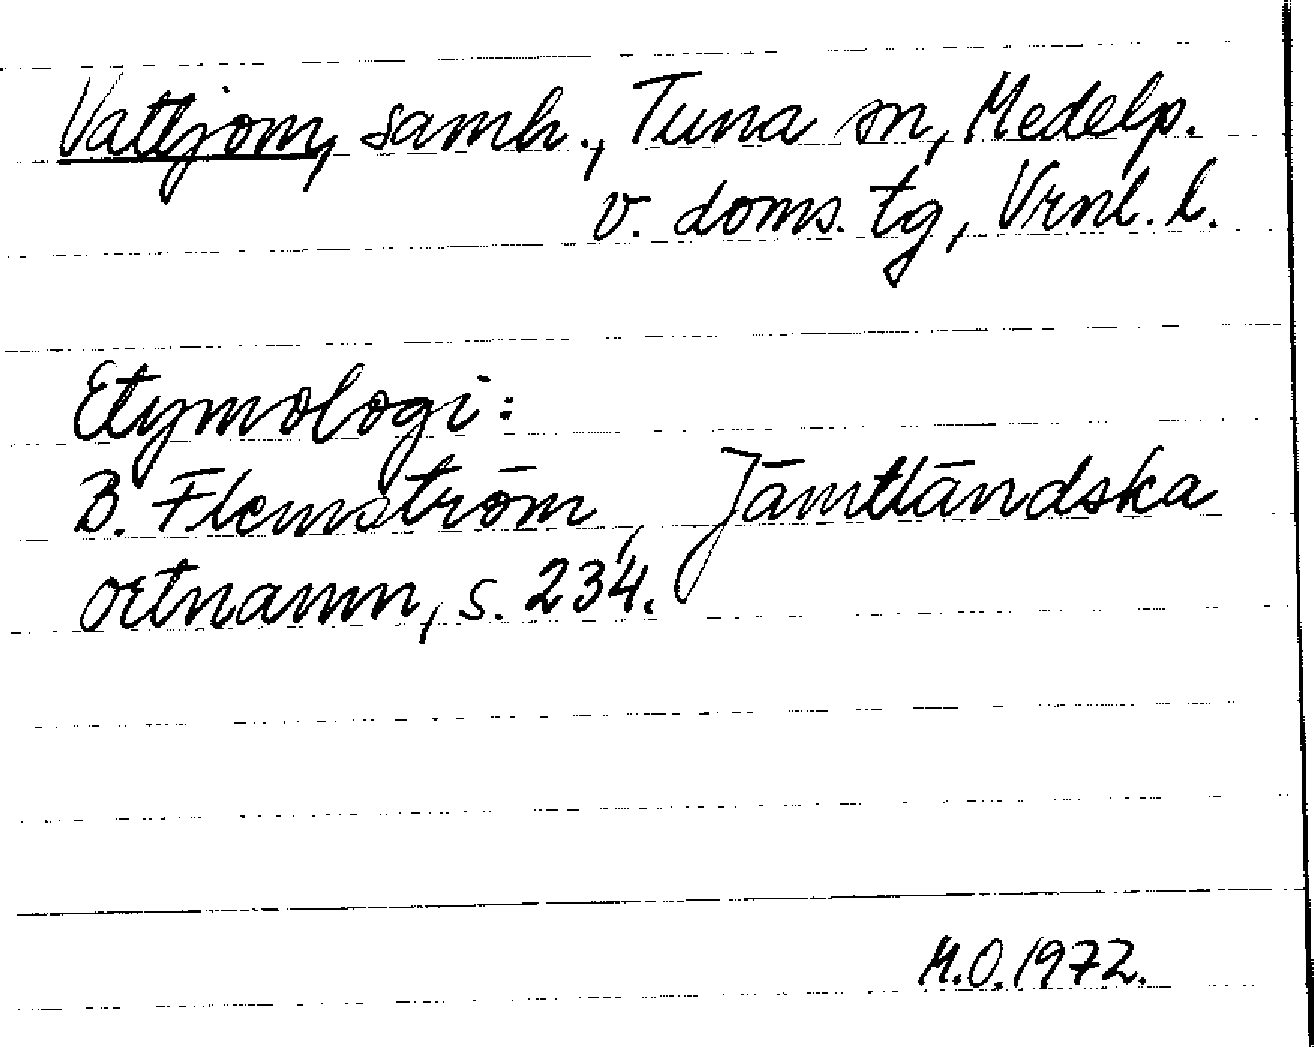 Vattjom, samh., Tuna sn, Medelp.
v. doms. tg, Vrnl. l.
Etymologi:
B. Flemström, Jämtländska
ortnamn, s. 234.
M.O. 1972.